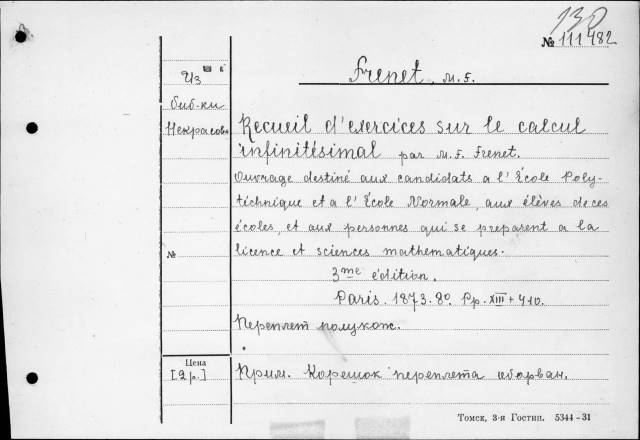 130
№ 111482
Из
биб-ки
Некрасова
Frenet, M. F.
Recueil d'exercices sur le calcul
infinitésimal par M. F. Frenet.
Ouvrage destiné aux candidats a l'École Poly-
technique et a l'École Normale, aux élèves de ces
écoles, et aux personnes qui se préparent a la
licence et sciences mathematiques.
№
3me édition.
Paris. 1873. 8º. Pp. XIII + 410.
Переплет полукож.
Цена
[2 р.]
Прим. Корешок переплета оборван.
Томск, 3-я Гостип. 5344-31